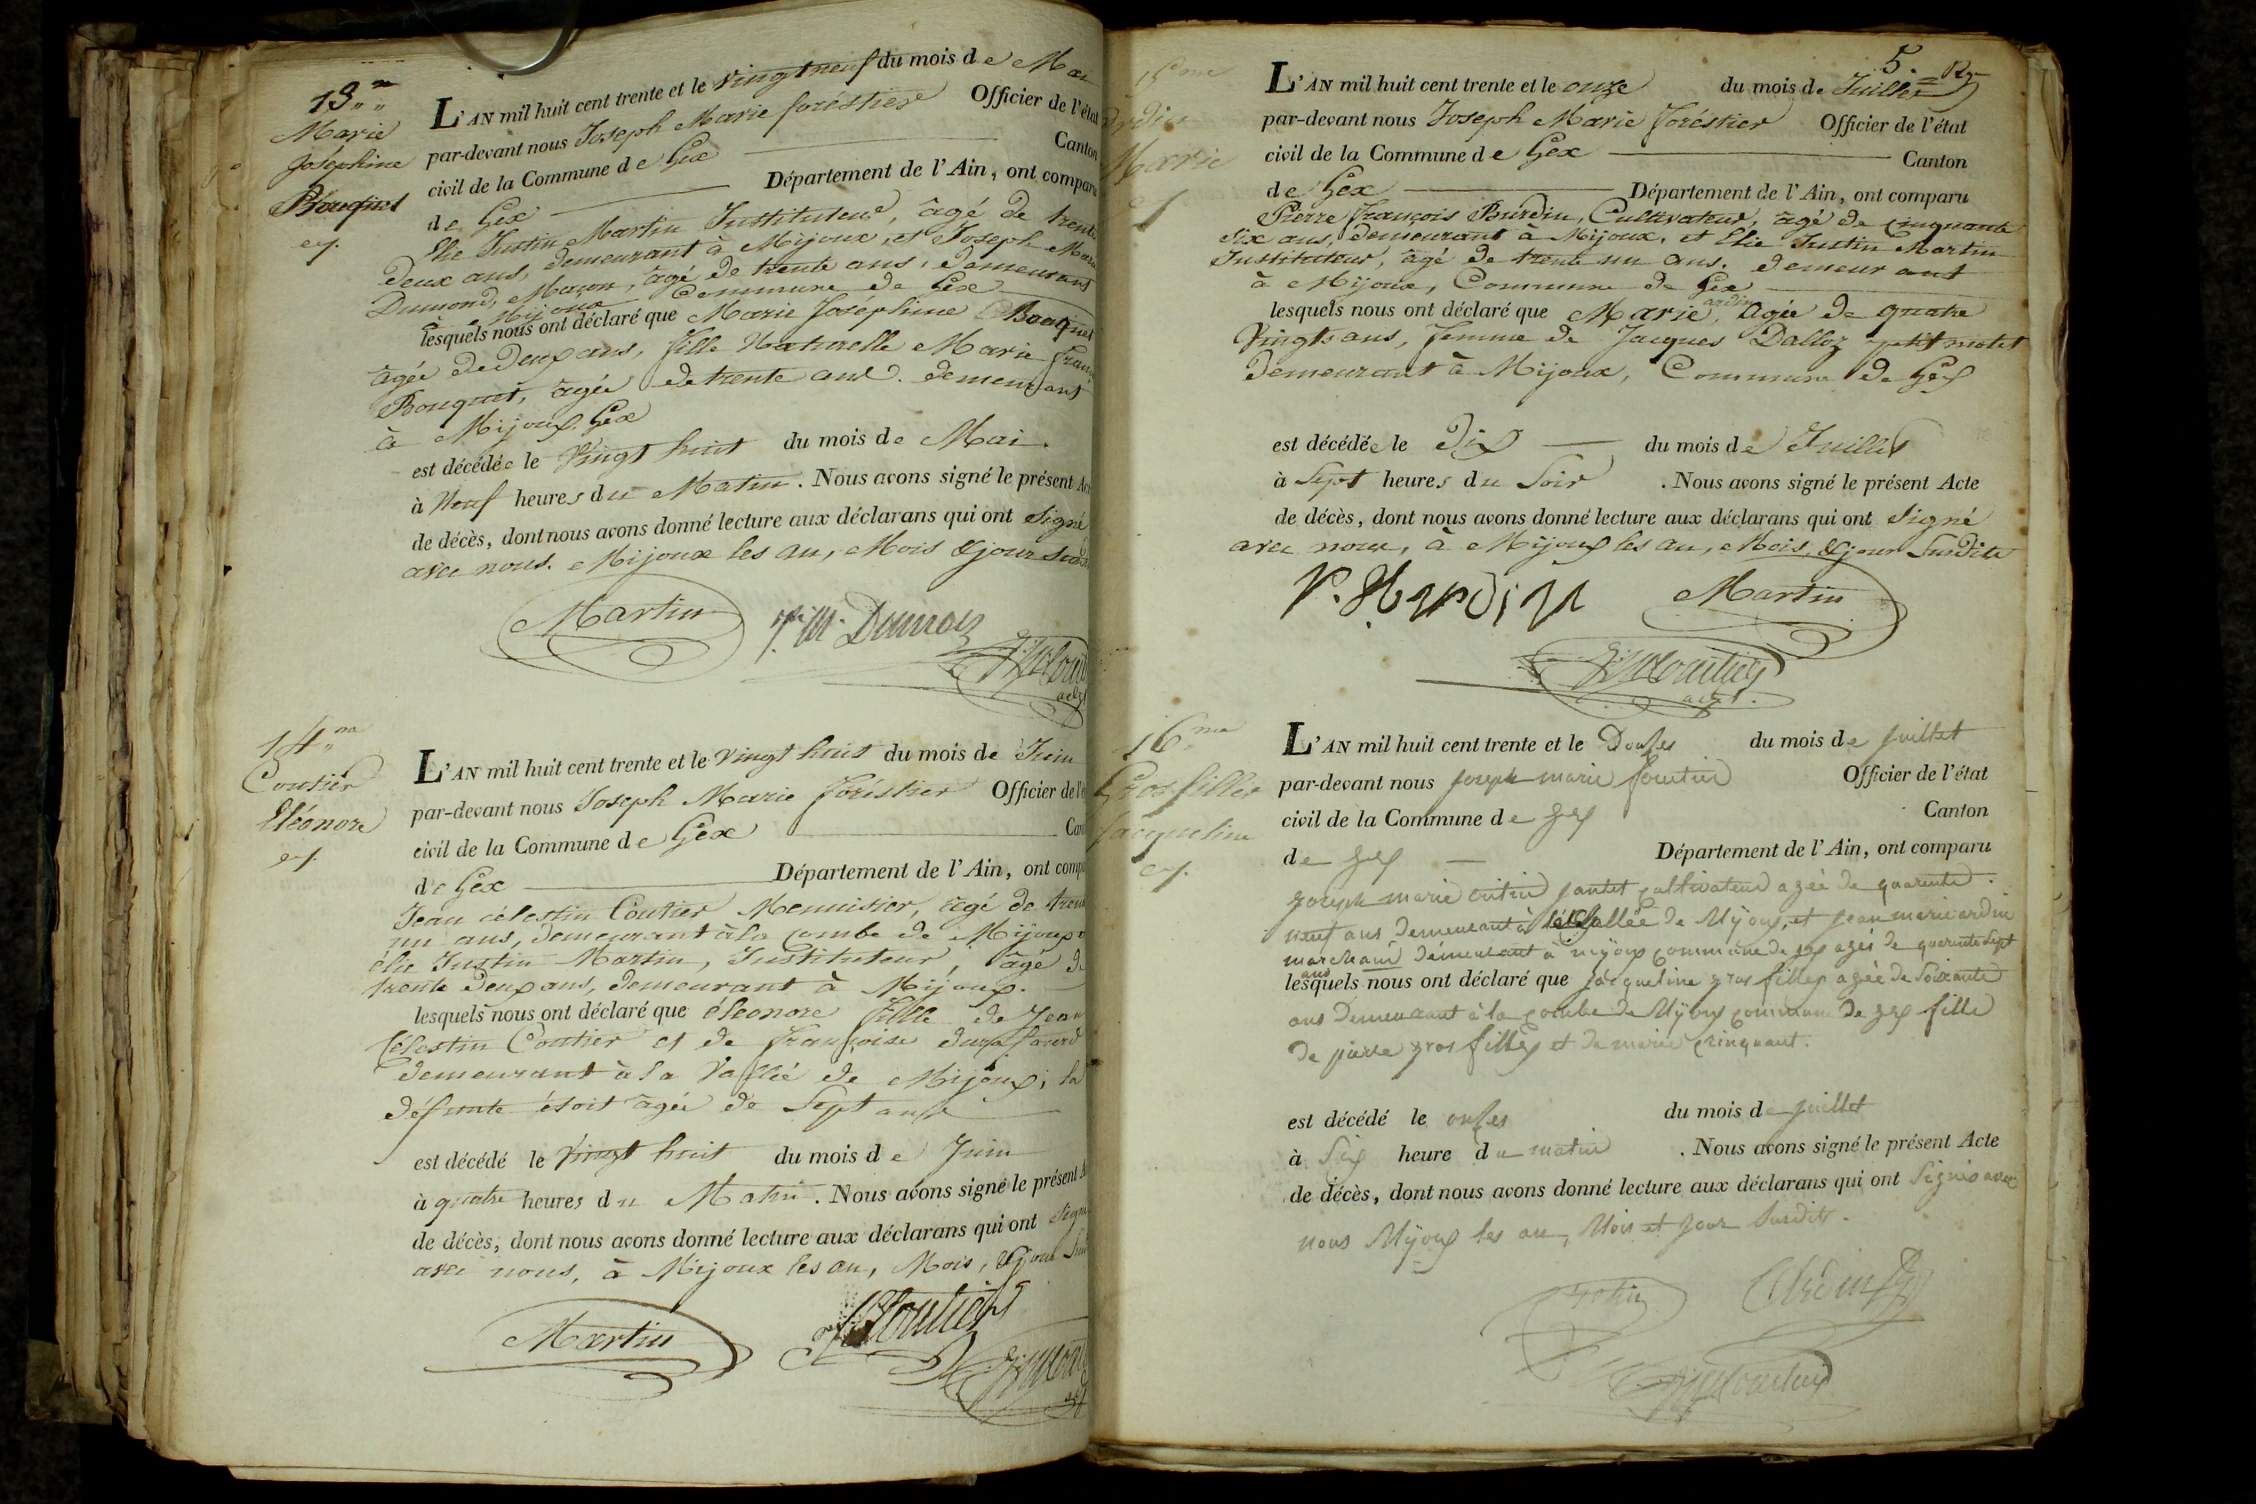 13.me
Marie
Joséphine
Bouquet
L'AN mil huit cent trente et le vingt neuf du mois de Mai
par-devant nous Joseph Marie foréstier Officier de l'état
civil de la Commune de Gex Canton
de Gex Département de l'Ain, ont comparu
Elie Justin Martin Instituteur, âgé de trente
deux ans, demeurant à Mijoux, et Joseph Marie
Dumond, Maçon, âgé de trente ans, demeurant
à Mijoux Commune de Gex
lesquels nous ont déclaré que Marie Joséphine Bouquet
agée de deux ans, fille Naturelle Marie
Bouquet, agée de trente ans. demeurant
à Mijoux. Gex
est décédée le Vingt huit du mois de Mai.
à Neuf heures du Matin. Nous avons signé le présent Acte
de décès, dont nous avons donné lecture aux déclarans qui ont Signé
avec nous. Mijoux les an, Mois & jour
Martin
J. M. Dumon
14.me
Coutier
Eléonore
L'AN mil huit cent trente et le Vingt huit du mois de Juin
par-devant nous Joseph Marie foréstier Officier de l'
civil de la Commune de Gex
de Gex Département de l'Ain, ont
Jean célestin Coutier Menuisier, âgé de
un ans, demeurant à la combe de Mijoux
élie Justin Martin, Instituteur, âgé de
trente deux ans, demeurant à Mijoux.
lesquels nous ont déclaré que éléonore fille de Jean
Célestin Coutier et de françoise
demeurant à la Vallée de Mijoux; la
défunte étoit agée de Sept ans
est décédé le Vingt huit du mois de Juin
à quatre heures du Matin. Nous avons signé le présent
de décès, dont nous avons donné lecture aux déclarans qui ont
avec nous, à Mijoux les an, Mois, & jour
Martin
Coutier
5.
15.me
Marie
L'AN mil huit cent trente et le onze du mois de Juillet
par-devant nous Joseph Marie foréstier Officier de l'état
civil de la Commune de Gex Canton
de Gex Département de l'Ain, ont comparu
Pierre françois Burdin, Cultivateur, âgé de cinquante
Six ans, demeurant à Mijoux, et Elie Justin Martin
Instituteur, âgé de trente un ans. demeurant
à Mijoux, Commune de Gex
lesquels nous ont déclaré que Marie ardin agée de quatre
Vingts ans, femme de Jacques Dalloz petit motet
demeurant à Mijoux, Commune de Gex
est décédée le Dix du mois de Juillet
à Sept heures du Soir. Nous avons signé le présent Acte
de décès, dont nous avons donné lecture aux déclarans qui ont Signé
avec nous, à Mijoux les an, Mois, & jour Susdits
Martin
16.me
Grosfillex
Jacqueline
L'AN mil huit cent trente et le Douses du mois de juillet
par-devant nous joseph marie Officier de l'état
civil de la Commune de gex Canton
de gex Département de l'Ain, ont comparu
joseph marie cultivateur agée de quarente
neuf ans demeurant à la vallée de Mijoux, et jean marie ardin
marchand demeurant à mijoux commune de gex agés de quarente Sept
ans
lesquels nous ont déclaré que jacqueline gros fillex agée de Soixante
ans demeurant à la combe de Mijoux commune de gex fille
de pierre gros fillex et de marie
est décédé le onses du mois de juillet
à Six heure du matin. Nous avons signé le présent Acte
de décès, dont nous avons donné lecture aux déclarans qui ont Signés avec
nous Mijoux les an, Mois et jour Susdits.